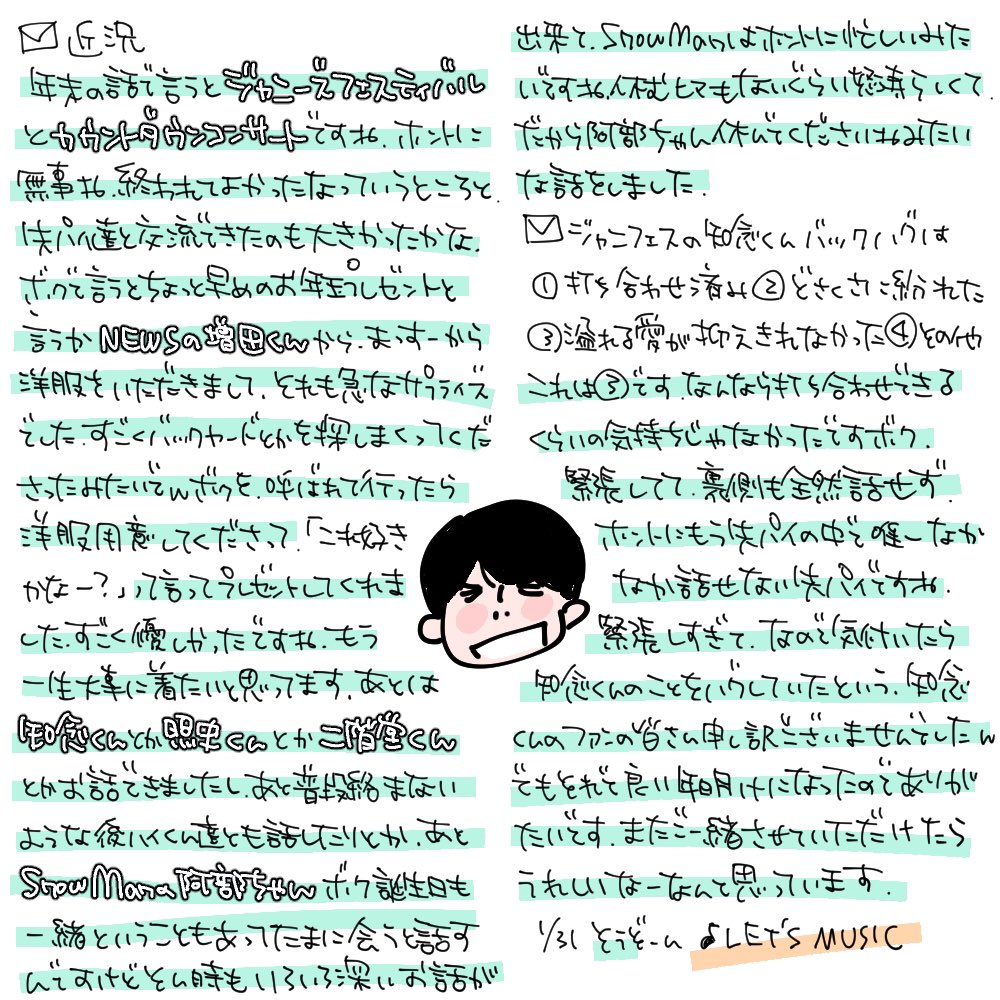 近況
年末の話で言うとジャニーズフェスティバル
とカウントダウンコンサートですね、ホントに
無事ね、終われてよかったなっていうところと、
先パイ達と交流できたのも大きかったかな、
ボクで言うとちょっと早めのお年玉プレゼントと
言うか NEWSの増田くんから、まっすーから
洋服をいただきまして、それも急なサプライズ
でした、すごくバックヤードとかを探しまくってくだ
さったみたいでwボクを、呼ばれて行ったら
洋服用意してくださって、「これ好き
かなー？」って言ってプレゼントしてくれま
した、すごく優しかったですね、もう
一生大事に着たいと思ってます、あとは
知念くんとか照史くんとか二階堂くん
とかお話できましたし、あと普段絡まない
ような後ハイくん達とも話したりとか、あと
SnowManの阿部ちゃん ボク誕生日も
一緒ということもあってたまに会うと話す
んですけどそん時もいろいろ深いお話が
出来て、SnowManはホントに忙しいみた
いですね、休むヒマもないぐらい結構らしくて、
だから阿部ちゃん休んでくださいねみたい
な話をしました、
ジャニフェスの知念くんバックハグは
①打ち合わせ済み②どさくさに紛れた
③溢れる愛が抑えきれなかった④その他
これは③です、なんなら打ち合わせできる
くらいの気持ちじゃなかったですボク、
緊張してて、裏側も全然話せず、
ホントにもう先パイの中で唯一なか
なか話せない先パイですね、
緊張しすぎて、なので気付いたら
知念くんのことをハグしていたという、知念
くんのファンの皆さん申し訳ございませんでしたん
でもそれで良い年明けになったのでありが
たいです、またご一緒させていただけたら
うれしいなーなんて思っています、
1/31 どうぞーん ♪LET'S MUSIC